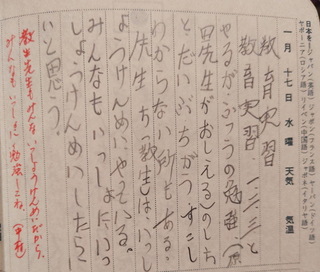 日本を=ジャパン(英語)ジャポン(フランス語)ヤーパン(ドイツ語)
ヤポーニア(ロシア語)リイペン(中国語)ジャポネ(イタリヤ語)
一月 十七日 水曜 天気 気温
教育実習
教育実習 一、二、三、と
やるがふつうの勉強(原
田先生がおしえる)のし
とだいぶちがう。すこし
わからない所もある。
先生も(教生)はいっし
ょうけんめいやている。
みんなもいっしょにいっ
しょうけんめいしたらい
いと思う。
教生先生もみんないっしょうけんめいだから、
みんなもいっしょに勉強しようね。